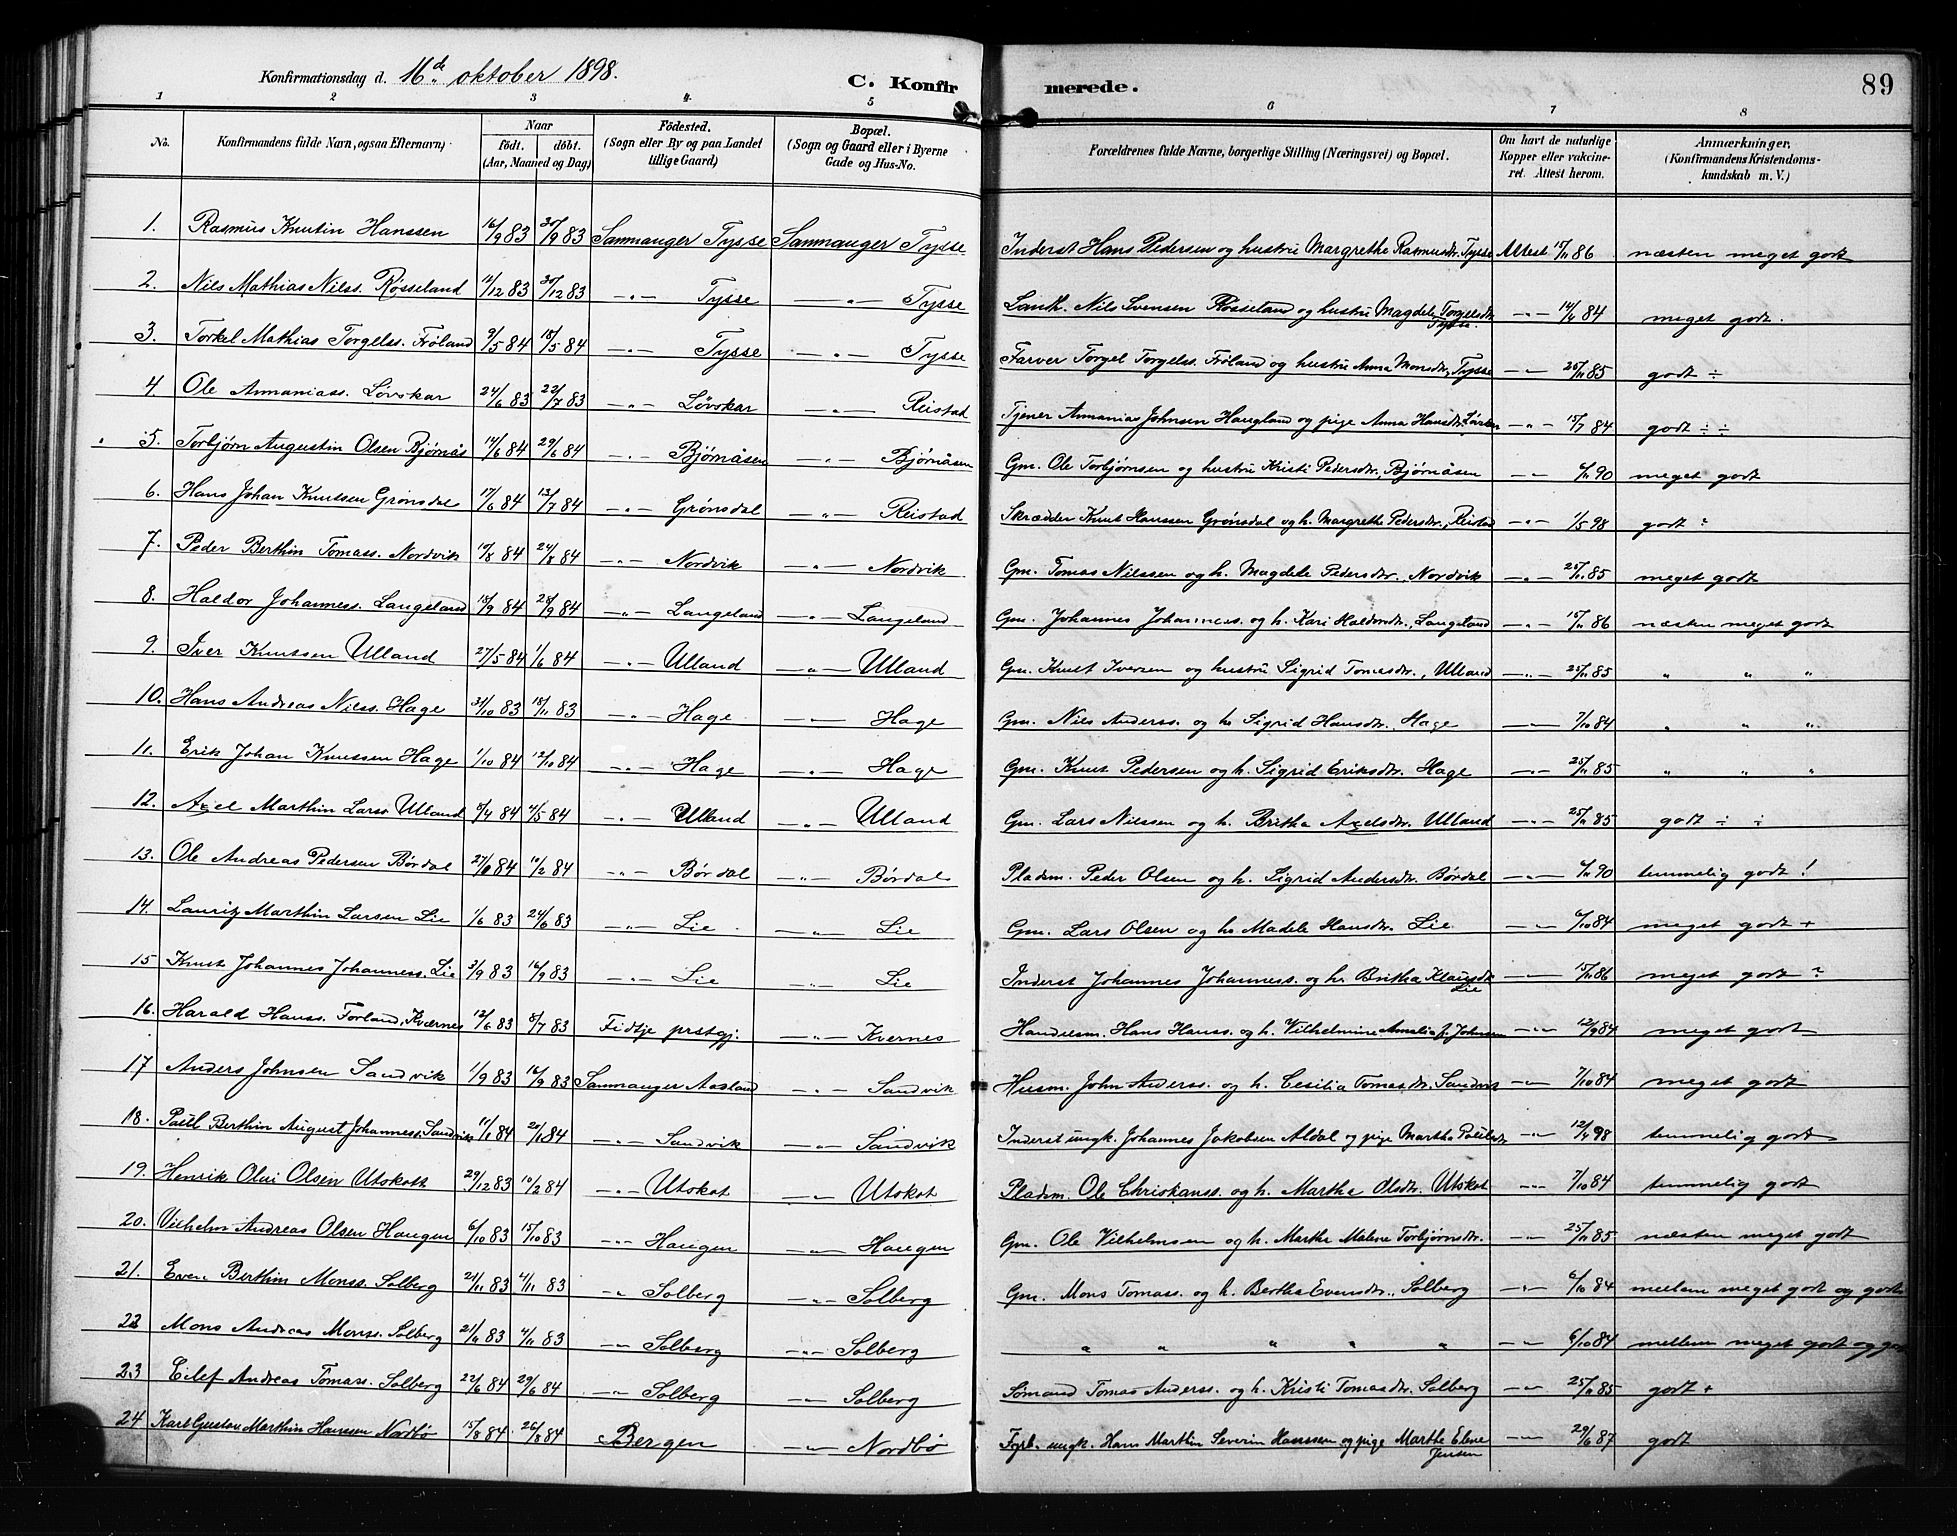 Konfirmationsdag d. 16de oktober 1898.
C. Konfirmerede.
89
1 2 3 4 5 6 7 8
No. Konfirmandens fulde Navn, ogsaa Efternavn) Naar født. døbt. (Aar, Maaned og Dag) Fødested. (Sogn eller By og paa Landet tillige Gaard) Bopæl. (Sogn og Gaard eller i Byerne Gade og Hus-No. Forældrenes fulde Navne, borgerlige Stilling (Næringsvei) og Bopæl. Om havt de naturlige Kopper eller vakcineret. Attest herom. Anmærkninger. (Konfirmandens Kristendomskundskab m. V.)
1. Rasmus Knutin Hanssen 16/9 83 30/9 83 Samnanger Tysse Samnanger Tysse Inderst Hans Pedersen og hustru Margrethe Rasmusdtr. Tysse Attest 15/11 86 næsten meget godt
2. Nils Mathias Nilss. Røsseland 11/12 83 30/12 83 —"— Tysse —"— Tysse Landh. Nils Svensen Røsseland og hustru Magdele Torgelsdtr. Tysse. —"— 14/4 84 meget godt.
3. Torkel Mathias Torgelss. Frøland 9/5 84 18/5 84 —"— Tysse —"— Tysse Farver Torgel Torgelss. Frøland og hustru Anna Monsdtr., Tysse —"— 25/11 85 godt ÷
4. Ole Annaniass. Løvskar 24/6 83 22/7 83 —"— Løvskar —"— Reistad Tjener Annanias Johnsen Haugland og pige Anna Hansdtr. —"— 15/7 84 godt ÷ ÷
5. Torbjørn Augustin Olsen Bjørnås 14/6 84 29/6 84 —"— Bjørnåsen —"— Bjørnåsen Gm. Ole Torbjørnsen og hustru Kristi Pedersdtr., Bjørnåsen —"— 90 meget godt
6. Hans Johan Knutsen Grønsdal 17/6 84 13/7 84 —"— Grønsdal —"— Reistad Skrædder Knut Hanssen Grønsdal og h. Margrethe Pedersdtr., Reistad —"— 1/5 98 godt ?
7. Peder Berthin Tomass. Nordvik 10/8 84 24/8 84 —"— Nordvik —"— Nordvik Gm. Tomas Nilssen og h. Magdele Pedersdtr., Nordvik —"— 25/11 85 meget godt
8. Haldor Johanness. Langeland 15/9 84 28/9 84 —"— Langeland —"— Langeland Gm. Johannes Johanness. og h. Kari Haldorsdtr., Langeland —"— 15/11 86 næsten meget godt
9. Iver Knutssen Ulland 27/5 84 1/6 84 —"— Ulland —"— Ulland Gm. Knut Iversen og hustru Sigrid Tomasdtr., Ulland —"— 25/11 85 " " "
10. Hans Andreas Nilss. Hage 31/10 83 18/11 83 —"— Hage —"— Hage Gm. Nils Anderss. og h. Sigrid Hansdtr. Hage —"— 7/10 84 " " "
11. Erik Johan Knutssen Hage 1/10 84 12/10 84 —"— Hage —"— Hage Gm. Knut Pedersen og h. Sigrid Eriksdtr. Hage —"— 25/11 85 " " "
12. Axel Marthin Larss Ulland 8/4 84 4/5 84 —"— Ulland —"— Ulland Gm. Lars Nilssen og h. Britha Axelsdtr. Ulland —"— 25/11 85 godt ÷ ÷
13. Ole Andreas Pedersen Børdal 27/1 84 10/2 84 —"— Børdal —"— Børdal Pladsm. Peder Olsen og h. Sigrid Andersdtr. Børdal —"— 90 temmelig godt !
14. Lauritz Marthin Larsen Lie 1/6 83 24/6 83 —"— Lie —"— Lie Gm. Lars Olsen og h. Madele Hansdtr. Lie —"— 6/10 84 meget godt +
15 Knut Johannes Johanness. Lie 2/9 83 16/9 83 —"— Lie —"— Lie Inderst Johannes Johanness. og h. Britha Klausdtr. Lie —"— 15/11 86 meget godt ?
16. Harald Hanss. Torland, Kvernes 12/6 83 8/7 83 Fidtje prstgj. —"— Kvernes Handelsm. Hans Hanss. og h. Vilhelmine Amelia f. Johnsen —"— 12/9 84 meget godt
17 Anders Johnsen Sandvik 1/9 83 16/9 83 Samnanger Aasland —"— Sandvik Husm. John Anderss. og h. Cesilia Tomasdtr. Sandvik —"— 7/10 84 meget godt
18. Paul Berthin August Johanness. Sandvik 11/1 84 20/1 84 —"— Sandvik —"— Sandvik Inderst ungk. Johannes Jakobsen Aldal og pige Martha Paulsdtr —"— 12/4 98 temmelig godt
19. Henrik Olai Olsen Utskott 29/12 83 10/2 84 —"— Utskot —"— Utskot Pladsm. Ole Christianss. og h. Martha Olsdtr. Utskot —"— 7/10 84 temmelig godt
20. Vilhelm Andreas Olsen Haugen 6/10 83 15/10 83 —"— Haugen —"— Haugen Gm. Ole Vilhelmsen og h. Martha Malene Torbjørnsdtr. —"— 25/11 85 næsten meget godt
21. Even Berthin Monss. Solberg 21/11 83 4/11 83 —"— Solberg —"— Solberg Gm. Mons Tomass. og h. Bertha Evensdtr., Solberg —"— 6/10 84 mellem meget godt og godt
22 Mons Andreas Monss. Solberg 21/11 83 4/11 83 —"— Solberg —"— Solberg " " " " " —"— 6/10 84 mellem meget godt og godt
23 Eilef Andreas Tomass. Solberg 22/6 84 29/6 84 —"— Solberg —"— Solberg Sømand Tomas Anderss. og h. Kristi Tomasdtr. Solberg —"— 25/11 85 godt +
24 Karl Gustav Marthin Hanssen Nordbø 15/8 84 26/8 84 Bergen —"— Nordbø ungk. Hans Marthin Severin Hanssen og pige Marthe Elene Jensen —"— 29/6 87 godt